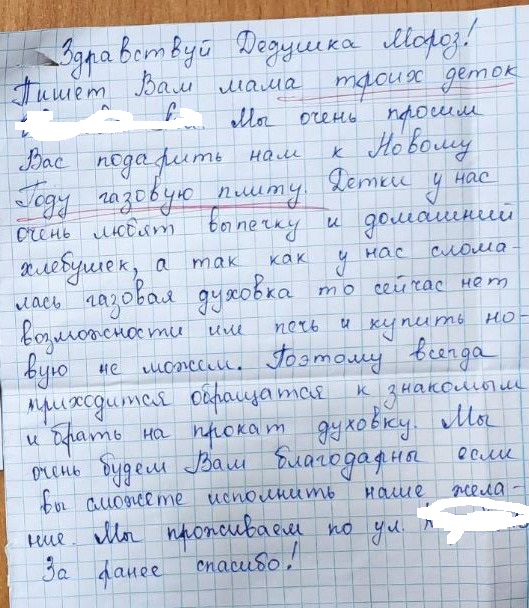 Здравствуй Дедушка Мороз!
Пишет Вам мама троих деток
Мы очень просим
Вас подарить нам к Новому
Году газовую плиту. Детки у нас
очень любят выпечку и домашний
хлебушек, а так как у нас слома-
лась газовая духовка то сейчас нет
возможности им печь и купить но-
вую не можем. Поэтому всегда
приходится обращатся к знакомым
и брать на прокат духовку. Мы
очень будем Вам благодарны если
вы сможете исполнить наше жела-
ние. Мы проживаем по ул.
За ранее спасибо!